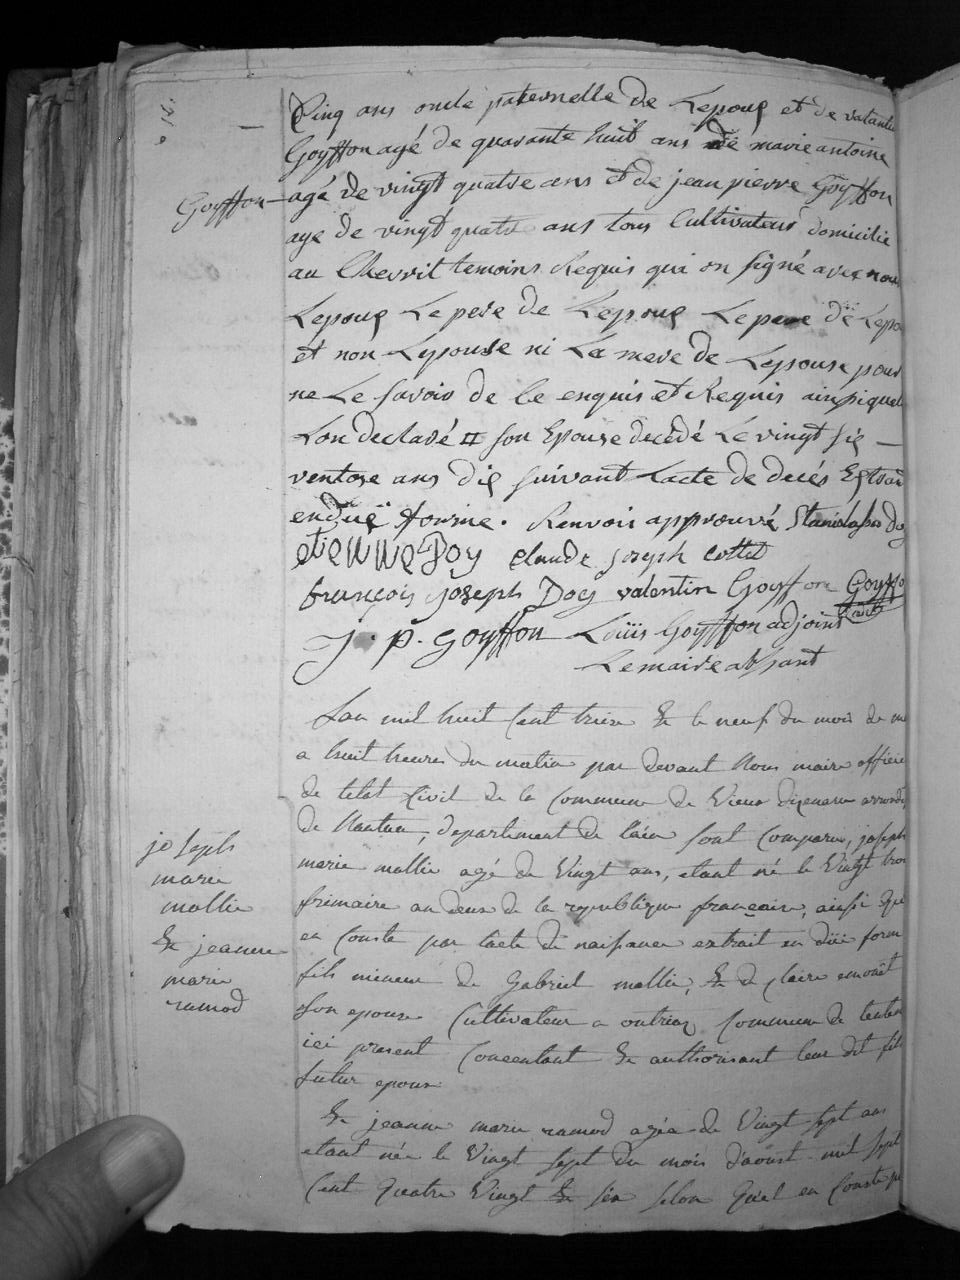 Cinq ans oncle paternelle de Lepoux et de valantin
Goyffon agé de quarante huit ans de marie antoine
Goyffon agé de vingt quatre ans et de jean pierre Goyffon
age de vingt quatre ans tous Cultivateurs domicilie
au Chevril temoins Requis qui on signé avec nous
Lepoux Le pere de Lepoux Le pere de Lepo
et non Lepouse ni La mere de Lepouse pour
ne Le savoir de ce enquis et Requis ainsi quel
Lon declaré # son Epouse decédé Le vingt six
ventose ans dix suivant Lacte de decés Extrait
en due forme . Renvoi approuvé Stanislas
etienne Doy claude joseph cottet
françois joseph Doy valentin Goyffon Goyffo
J. p. goyffon Louis Goyffon adjoint
Le maire absant
Lan mil huit Cent treize & le neuf du mois de m
a huit heures du matin par devant Nous maire officie
de letat Civil de la Commune de Vieux dizenave arrondi
de Nantua, departement de lain sont Comparu, joseph
marie mallie agé de Vingt ans, etant né le Vingt troi
frimaire an deux de la republique française, ainsi que
en Conste par lacte de naissance extrait en düe form
fils mineur de Gabriel mallie, & de Claire emoüet
son epouse Cultivateur a outriaz Commune de
ici present Concentant & authorisant leur dit fils
futur epoux
& jeanne marie ramod agée de Vingt sept ans
etant née le Vingt sept du mois d'aoust mil sept
Cent Quatre Vingt & six selon Quil en Conste p
joseph
marie
mallie
& jeanne
marie
ramod